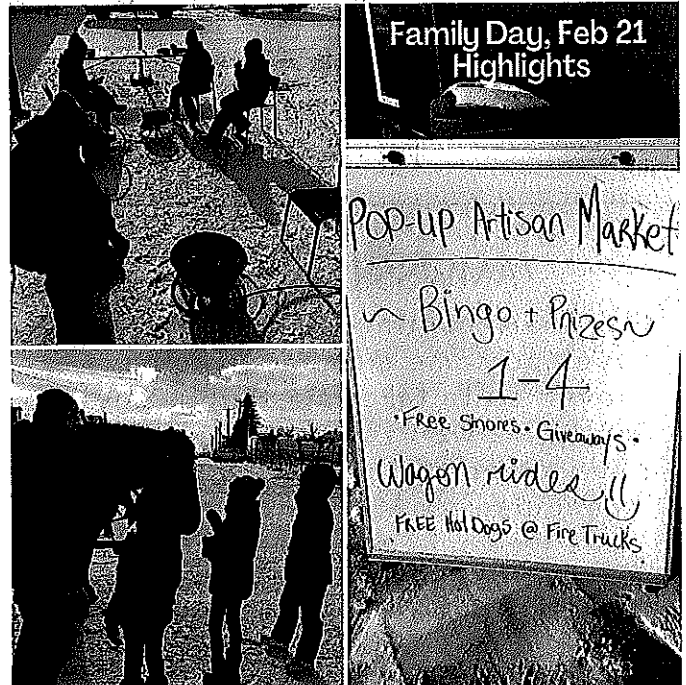 Family Day, Feb 21
Highlights
Pop-up Artisan Market
~ Bingo + Prizes ~
1-4
• Free Smores • Giveaways •
Wagon rides !!
FREE Hot Dogs @ Fire Trucks